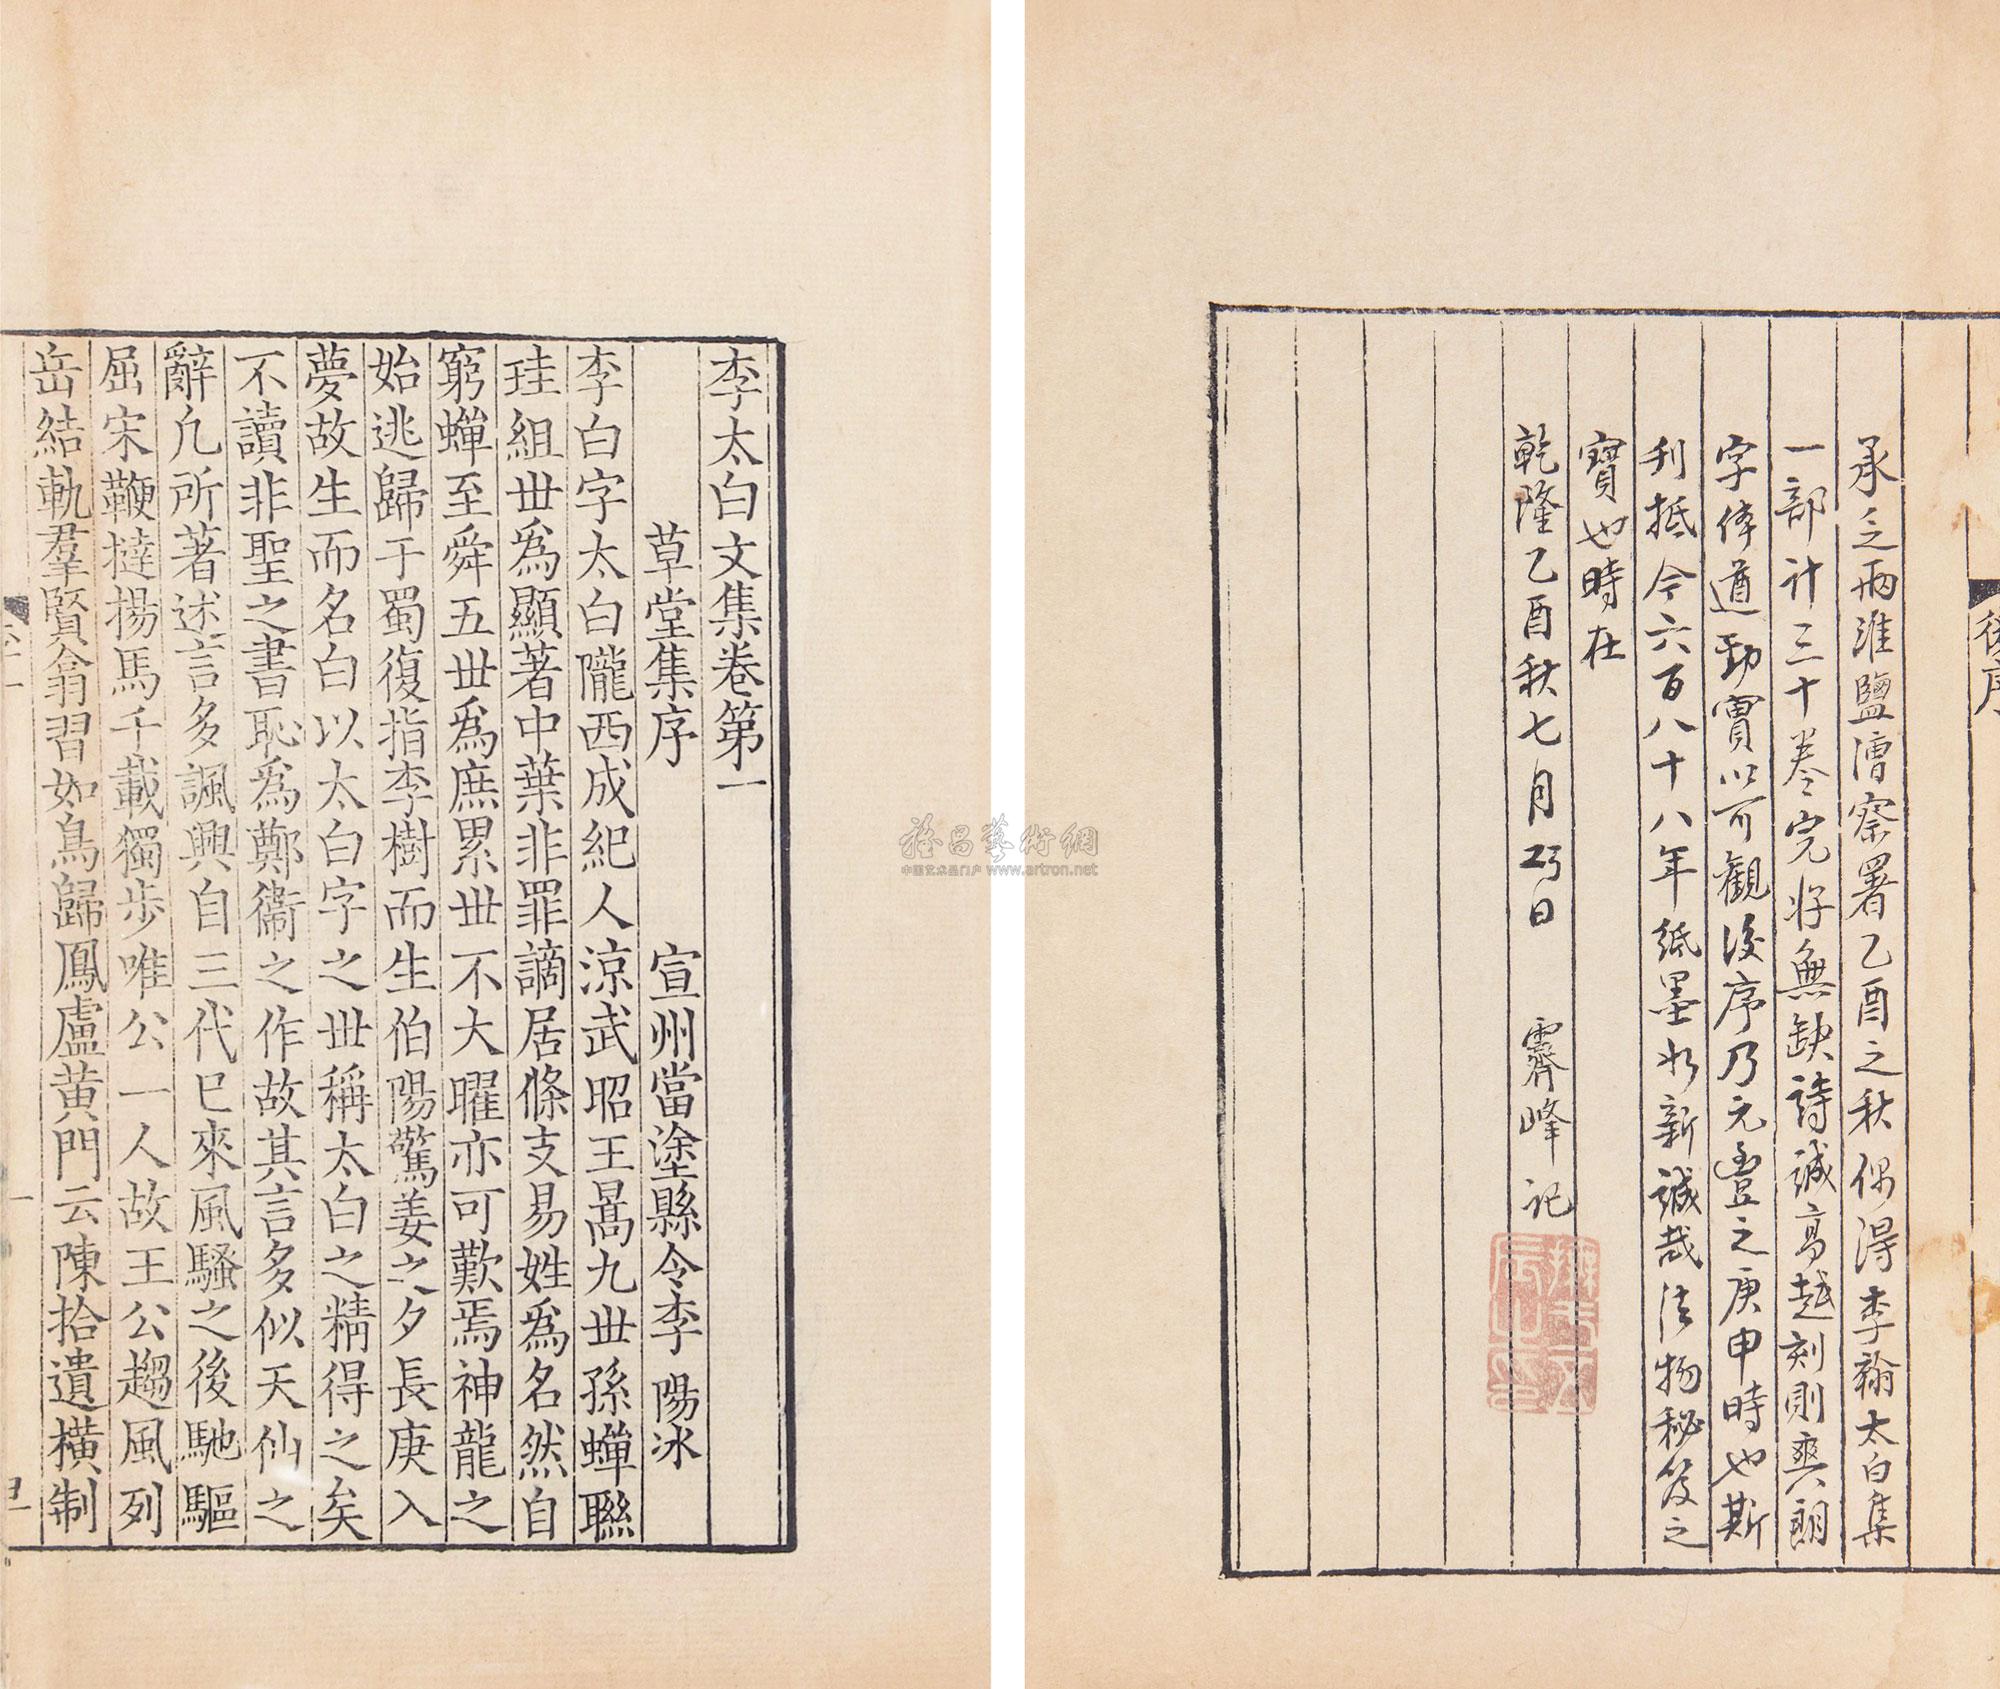 後序
承乏兩淮鹽漕察署乙酉之秋偶得李翰太白集
一部計三十卷完好無缺詩誠高越刻則爽朗
字体遒勁實以可觀後序乃元豊之庚申時也斯
刊抵今六百八十八年紙墨如新誠哉法物秘笈之
寶也時在
乾隆乙酉秋七月日 霽峰記
李太白文集卷第一
草堂集序 宣州當塗縣令李陽冰
李白字太白隴西成紀人涼武昭王暠九丗孫蟬聮
珪組丗爲顯著中葉非罪謫居條支易姓爲名然自
窮蟬至舜五丗爲庶累丗不大曜亦可歎焉神龍之
始逃歸于蜀復指李樹而生伯陽驚姜之夕長庚入
夢故生而名白以太白字之丗稱太白之精得之矣
不讀非聖之書恥爲鄭衞之作故其言多似天仙之
辭凢所著述言多諷興自三代已來風騷之後馳驅
屈宋鞭撻揚馬千載獨步唯公一人故王公趨風列
岳結軌羣賢翕習如鳥歸鳳盧黄門云陳拾遺橫制
雅昌藝術網
中国艺术品门户 www.artron.net